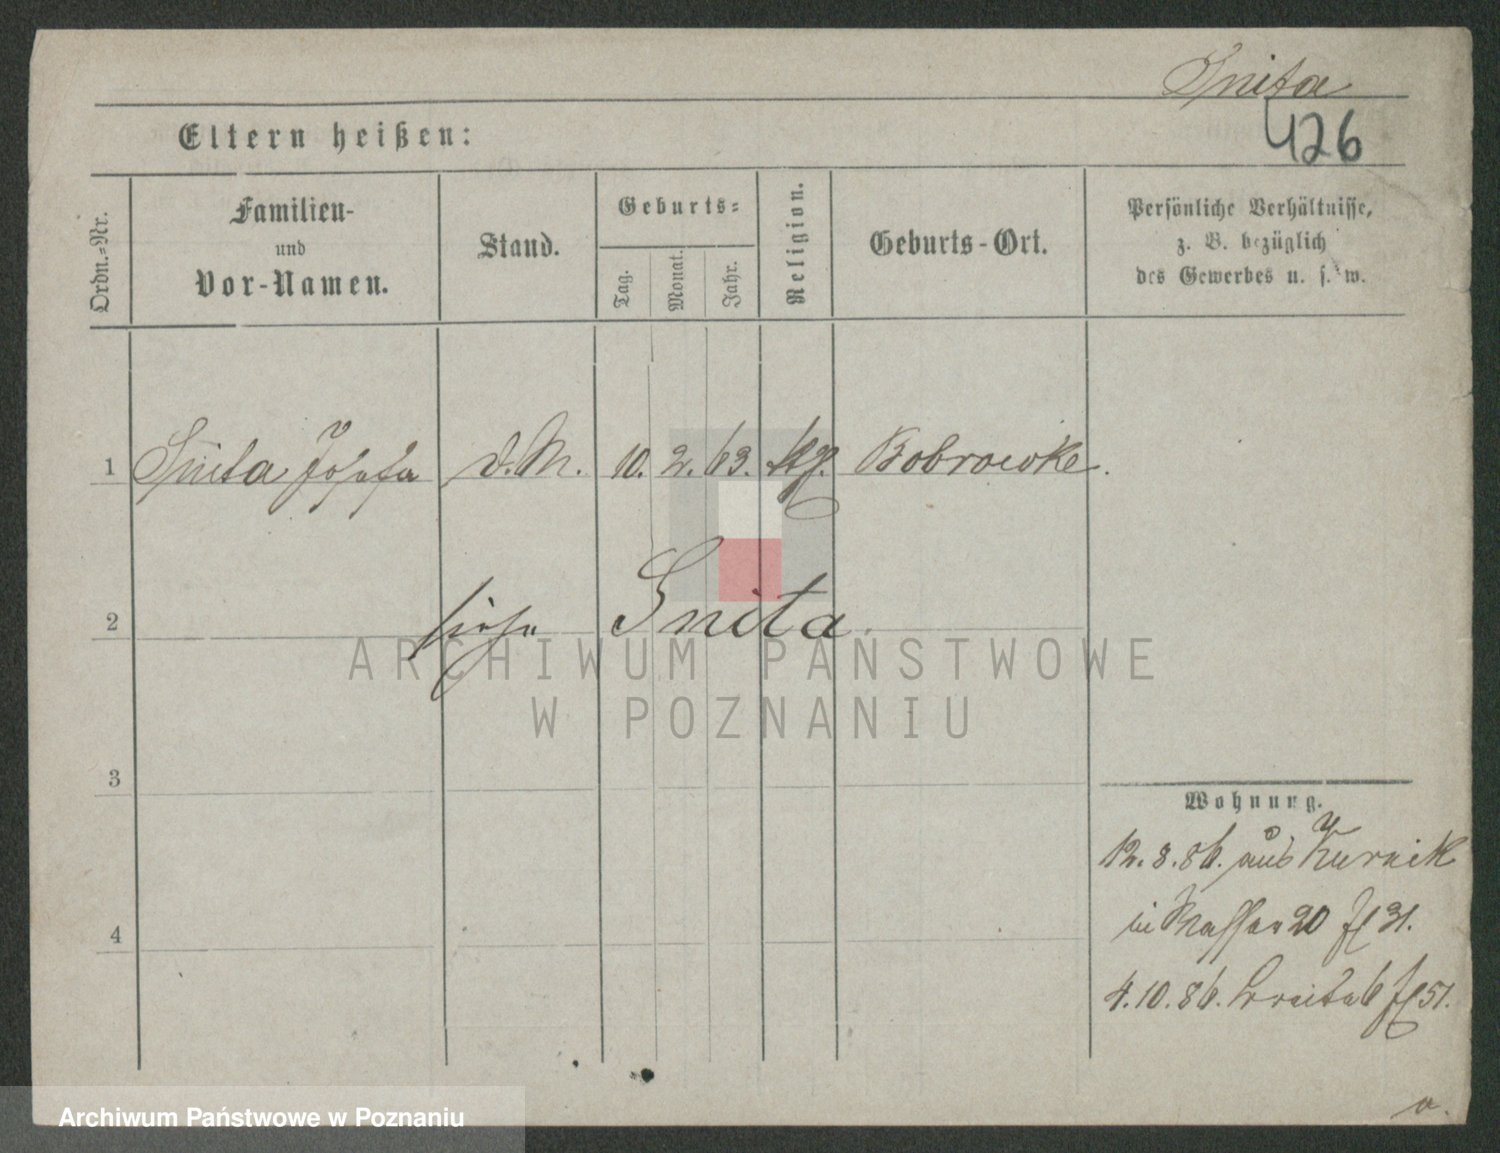 Snita
426
Eltern heißen:
Ordn.-Nr.
Familien-
und
Vor-Namen.
Stand.
Geburts-
Tag.
Monat.
Jahr.
Religion.
Geburts-Ort.
Persönliche Verhältnisse,
z. B. bezüglich
des Gewerbes u. s. w.
1 Snita Josefa d. M. 10. 2. 63. kg. Bobrowke.
2 siehe Snita.
ARCHIWUM PAŃSTWOWE
W POZNANIU
3
Wohnung.
12. 8. 86. aus Kurnik
in 20 31.
4
4. 10. 86. Breite 6 51.
Archiwum Państwowe w Poznaniu